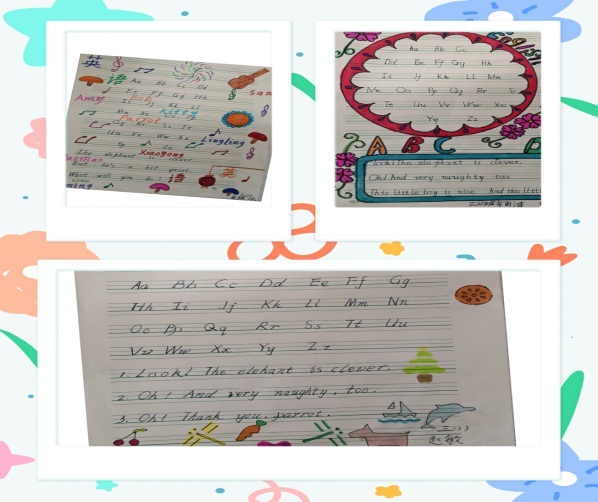 英
语
Aa Bb Cc Dd
Ee Ff Gg Hh
Ii Jj Kk Ll
Amy
Bob
Kitty
Parrot
San
Lingling
Xiaoyong
The elephant
What will you do?
语 英
English
Aa Bb Cc
Dd Ee Ff Gg Hh
Ii Jj Kk Ll Mm
Nn Oo Pp Qq Rr Ss
Tt Uu Vv Ww Xx
Yy Zz
A B C D
Look! The elephant is clever.
Oh! And very naughty too.
This little boy is nice. And this littl
Aa Bb Cc Dd Ee Ff Gg
Hh Ii Jj Kk Ll Mm Nn
Oo Pp Qq Rr Ss Tt Uu
Vv Ww Xx Yy Zz
1. Look! The elehant is clever.
2. Oh! And very naughty, too.
3. Oh! Thank you. parrot.
赵敏